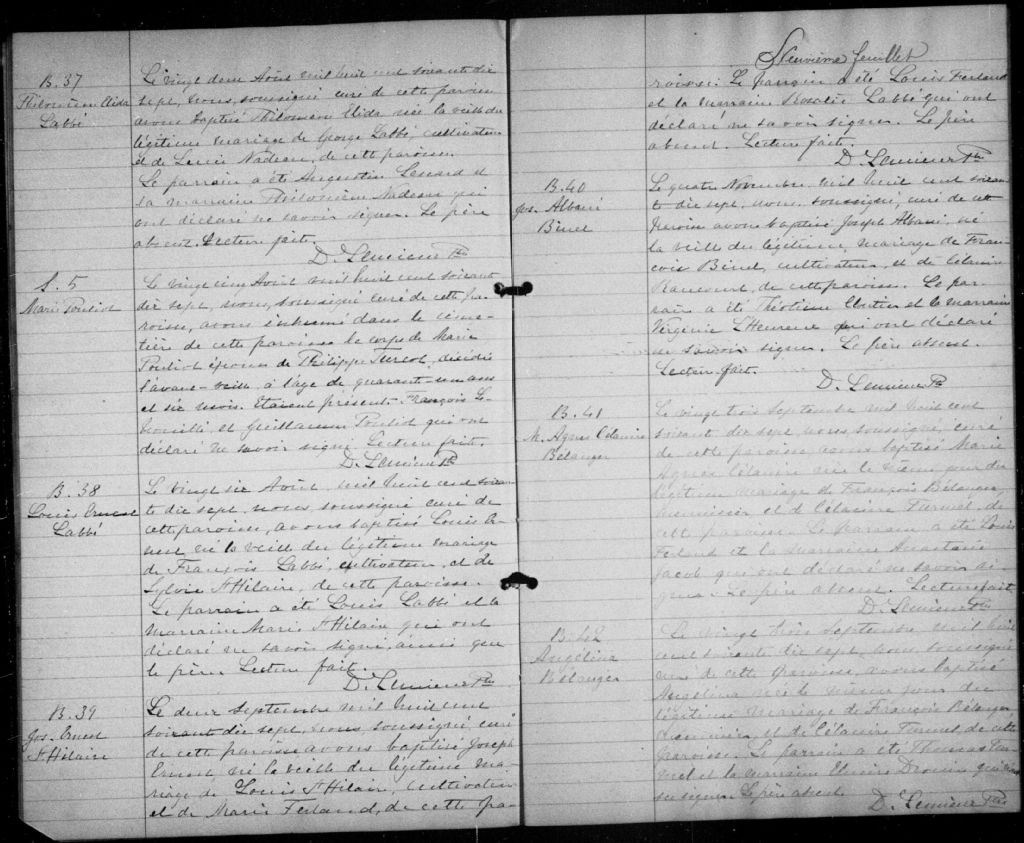 B. 37
Philomène Elida
Labbé
Le vingt deux Août mil huit cent soixant dix
sept, nous, soussigné curé de cette paroisse
avons baptisé Philomène Elida née la veille du
légitime mariage de George Labbé cultivateur
et de Nadeau, de cette paroisse.
Le parrain a été Augustin et
la marraine Philomène Nadeau qui
ont déclaré ne savoir signer. Le père
absent. Lecture faite.
D. Lemieux Ptre
S. 5
Marie Pouliot
Le vingt Août mil huit cent soixant
dix sept, nous, soussigné curé de cette pa-
roisse, avons inhumé dans le cime-
tière de cette paroisse le corps de Marie
Pouliot épouse de Philippe Turcot, décédée
l'avant-veille, à l'age de quarant-un ans
et six mois. Etaient présent. François
et Guillaume Pouliot qui ont
déclaré ne savoir signé. Lecture faite.
D. Lemieux Ptre
B. 38
Louis Ernest
Labbé
Le vingt six Août, mil huit cent soixan-
te dix sept, nous, soussigné curé de
cette paroisse, avons baptisé Louis Er-
nest, né la veille du légitime mariage
de François Labbé, cultivateur, et de
Sylvie St Hilaire, de cette paroisse.
Le parrain a été Louis Labbé et la
marraine Marie St Hilaire qui ont
déclaré ne savoir signé, ainsi que
le père. Lecture faite.
D. Lemieux Ptre
B. 39
Jos. Ernest
St Hilaire
Le deux Septembre mil huit cent
soixant dix sept, nous, soussigné, curé
de cette paroisse avons baptisé Joseph
Ernest, né la veille du légitime ma-
riage de Louis St Hilaire, cultivateur
et de Marie Ferland, de cette pa-
Neuvième feuillet
roisse. Le parrain a été Louis Ferland
et la marraine Rosalie Labbé qui ont
déclaré ne savoir signer. Le père
absent. Lecture faite.
D. Lemieux Ptre
B. 40
Jos. Albani
Binet
Le quatre Novembre mil huit cent soixan-
te dix sept, nous, soussigné, curé de cette
paroisse avons baptisé Joseph Albani, né
la veille du légitime mariage de Fran-
çois Binet, cultivateur, et de Célanire
de cette paroisse. Le par-
rain a été Théotime Cloutier et la marraine
Virginie L'Heureux qui ont déclaré
ne savoir signer. Le père absent.
Lecture faite.
D. Lemieux Ptre
B. 41
M. Agnes Célanire
Bélanger
Le vingt trois Septembre mil huit cent
soixant dix sept, nous, soussigné, curé
de cette paroisse avons baptisé Marie
Agnes Célanire née le même jour du
légitime mariage de François Bélanger
menuisier et de Célanire Turmel, de
cette paroisse. Le parrain a été Louis
Ferland et la marraine Anastasie
Jacob qui ont déclaré ne savoir si-
gner. Le père absent. Lecture faite.
D. Lemieux Ptre
B. 42
Angélina
Bélanger
Le vingt trois Septembre mil huit
cent soixante dix sept, nous, soussigné
curé de cette paroisse, avons baptisé
Angélina née le même jour du
légitime mariage de François Bélanger
menuisier, et de Célanire Turmel, de cette
paroisse. Le parrain a été Thomas Tur-
mel et la marraine Drouin qui
signer. Le père absent.
D. Lemieux Ptre